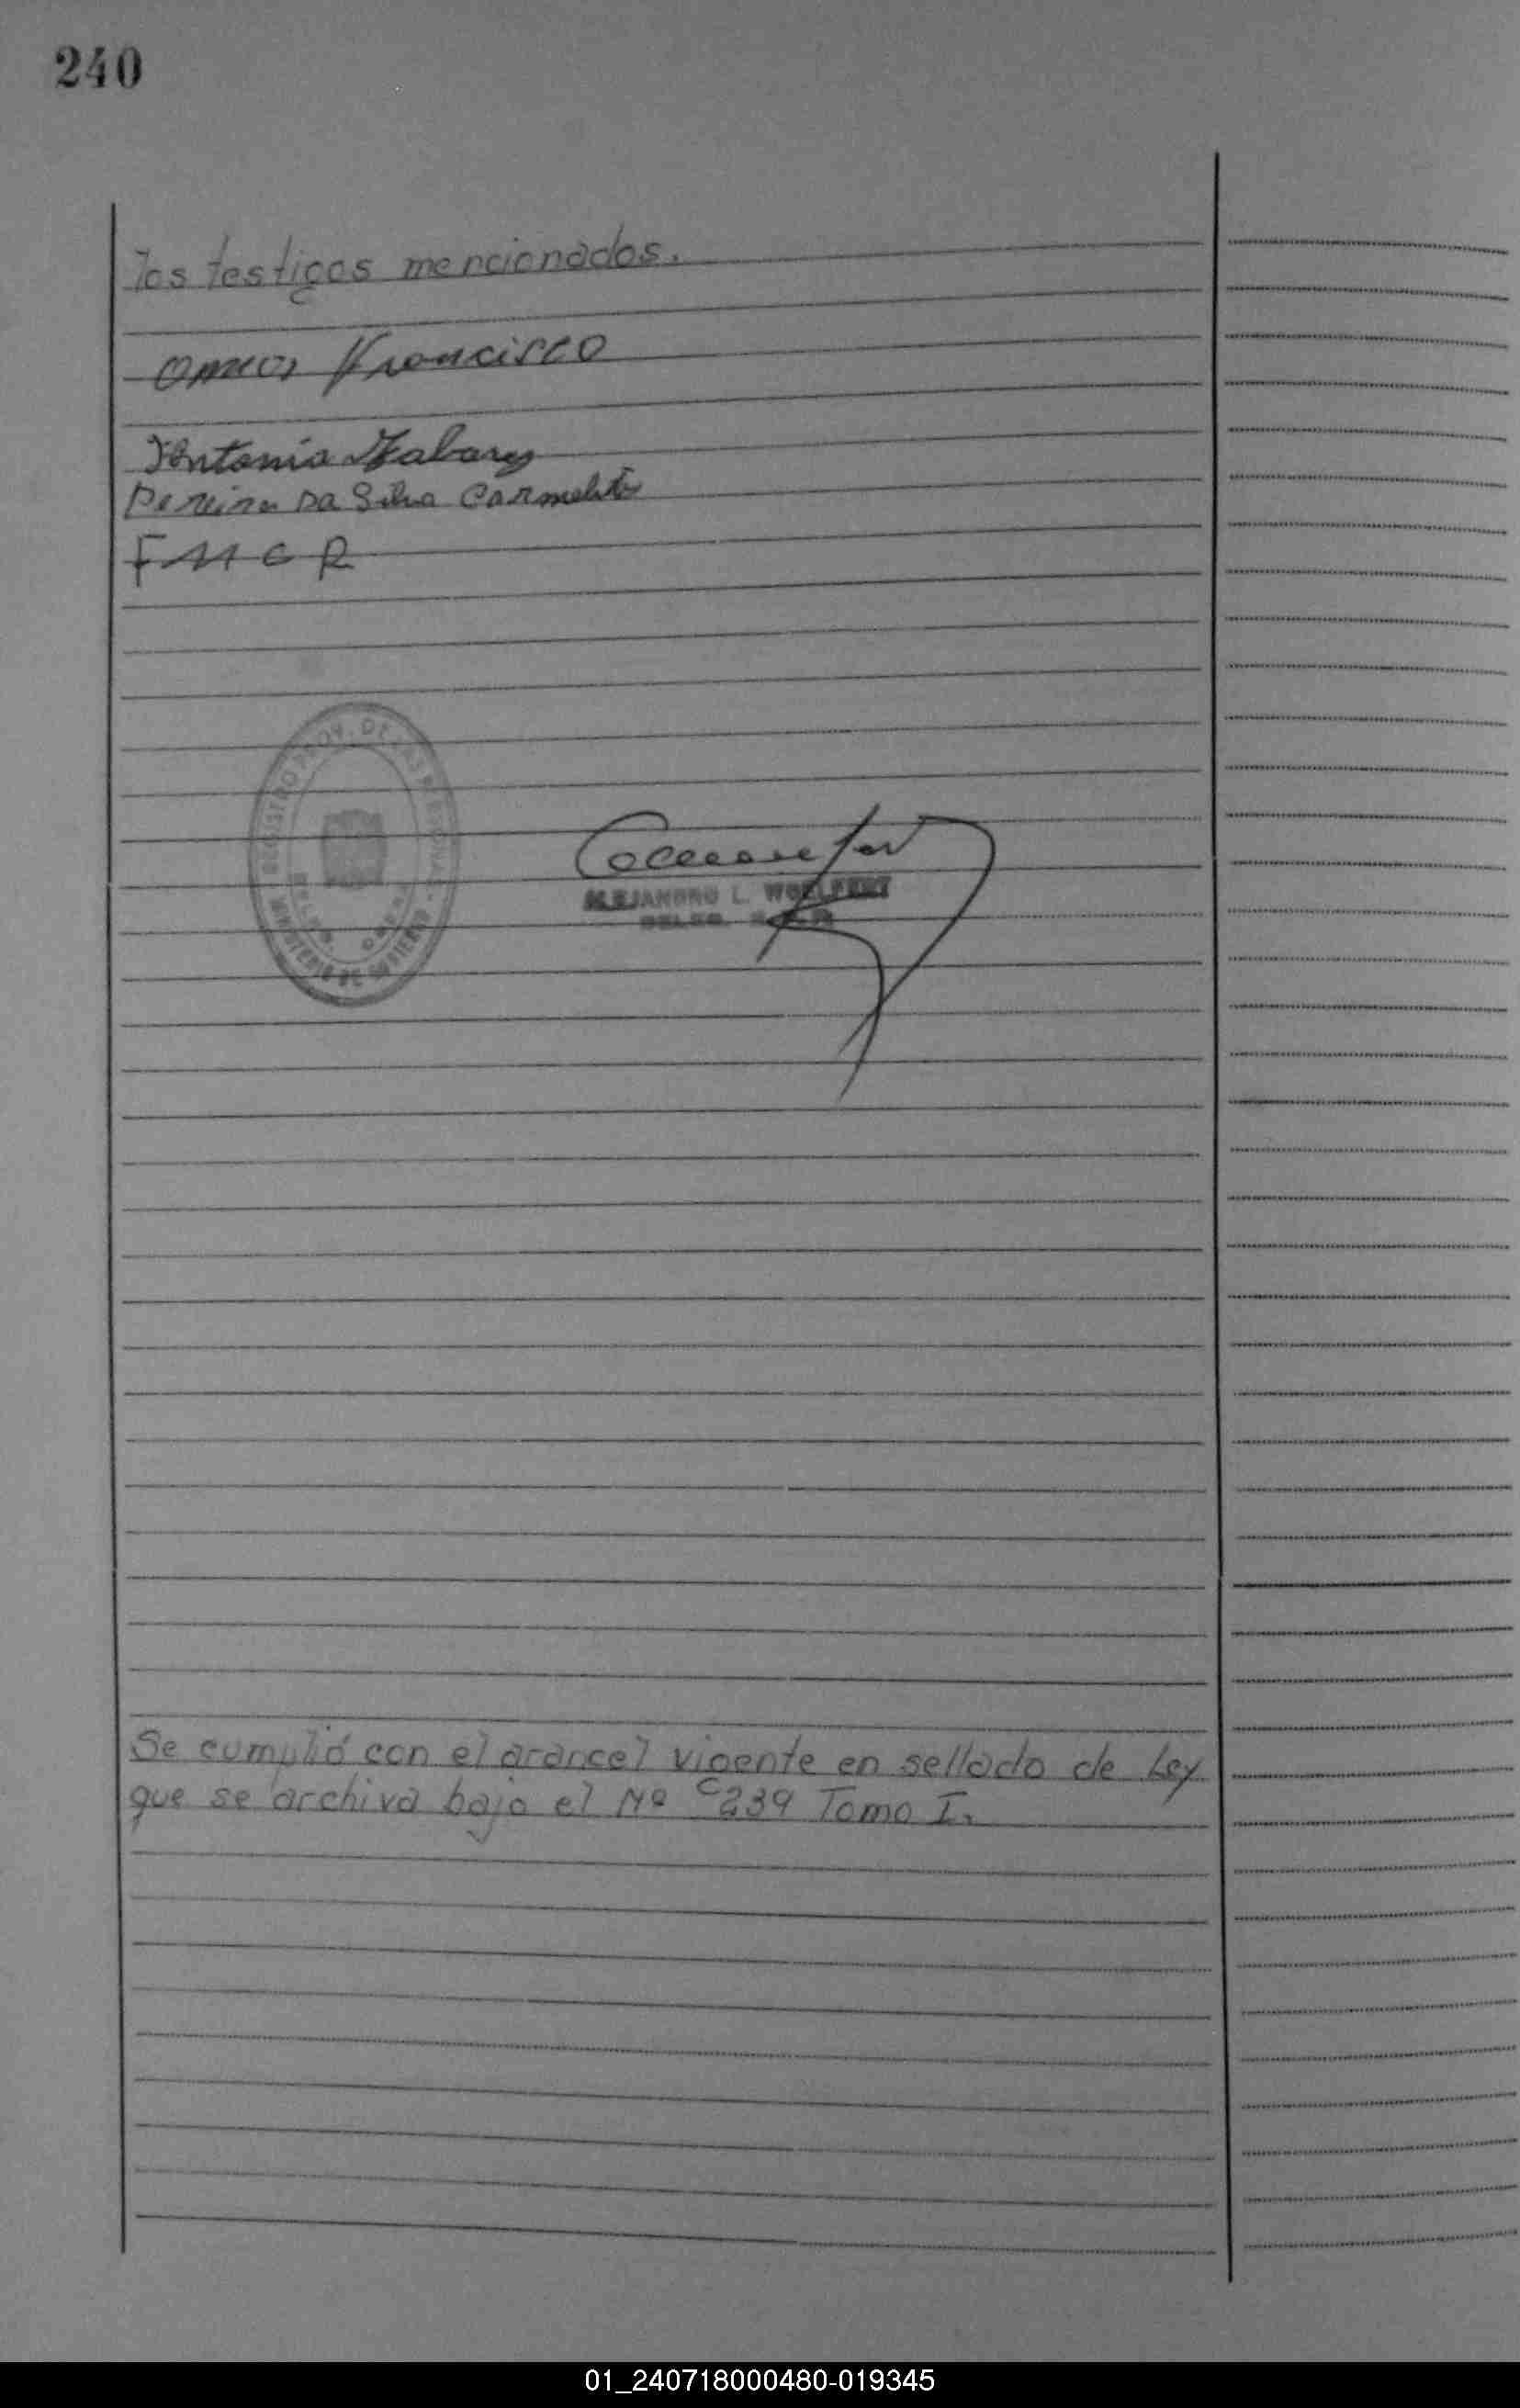 240
los testigos mencionados.
Francisco
Antonia Tabares
Pereira Da Silva Carmelita
F M G R
REGISTRO PROV. DE LAS PERSONAS
MINISTERIO DE GOBIERNO
ALEJANDRO L. WOELFERT
DELEG.
Se cumplió con el arancel vigente en sellado de Ley
que se archiva bajo el Nº C239 Tomo I.
01_240718000480-019345